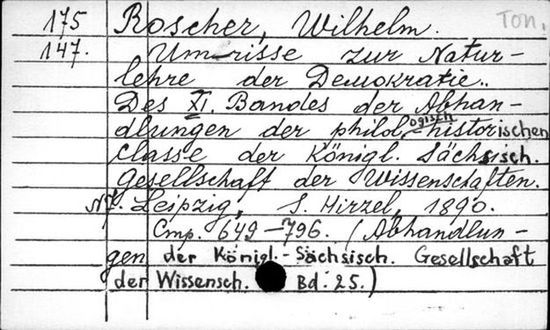 175 Roscher, Wilhelm. Ton.
147. Umrisse zur Natur-
lehre der Demokratie..
Des XI. Bandes der Abhan-
dlungen der philologisch-historischen
Classe der Königl. Sächsisch.
Gesellschaft der Wissenschaften.
N7. Leipzig, S. Hirzel, 1890.
Cmp. 649-796. (Abhandlun-
gen der Königl.-Sächsisch. Gesellschaft
der Wissensch. Bd. 25.)